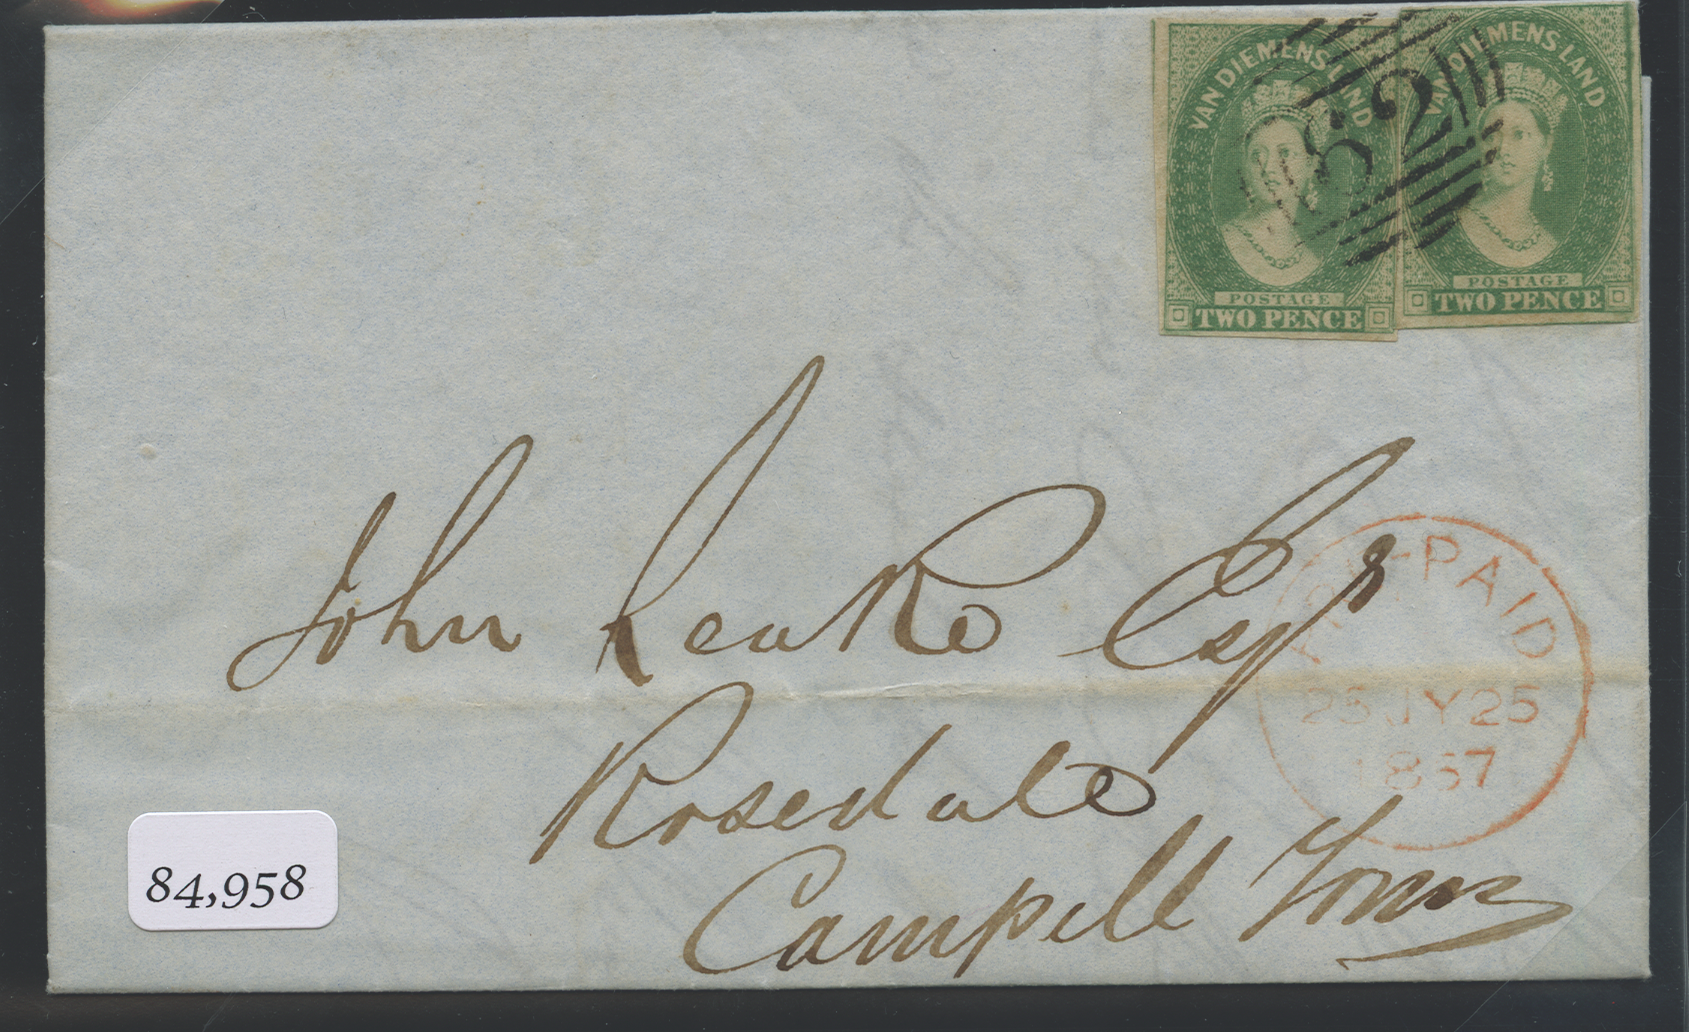 VAN DIEMENS LAND
POSTAGE
TWO PENCE
VAN DIEMENS LAND
POSTAGE
TWO PENCE
62
John Leake Esqr
Rosedale
Campell Town
PAID
25 JY 25
1857
84,958